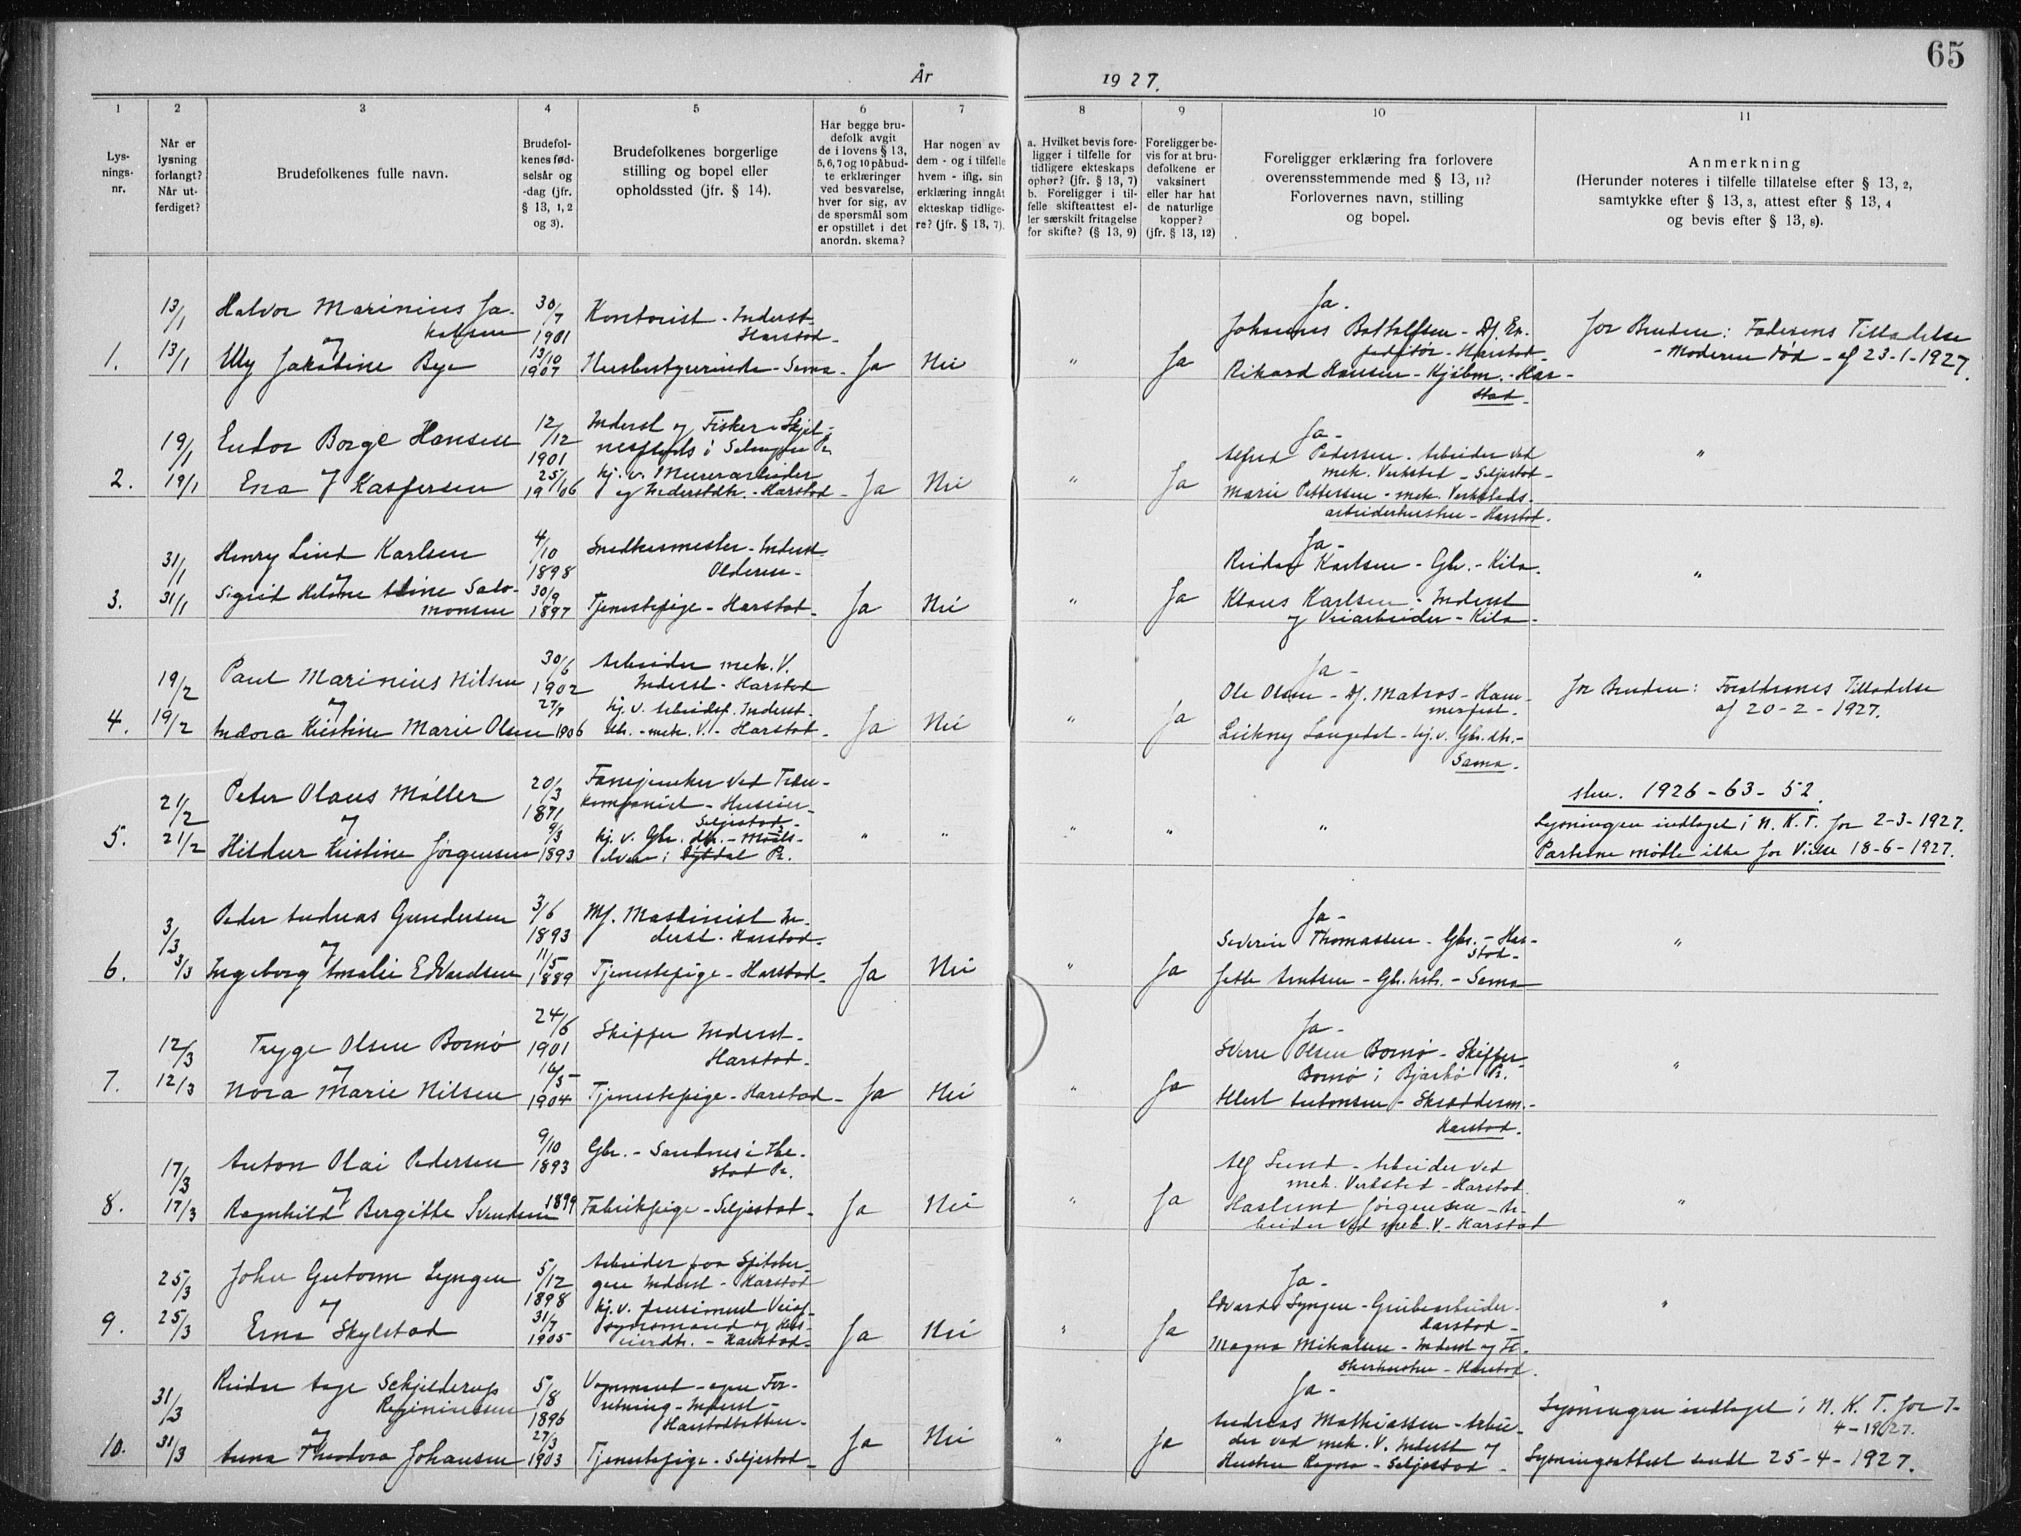 65
År 1927.
1 2 3 4 5 6 7 8 9 10 11
Lys-
nings-
nr.
Når er
lysning
forlangt?
Når ut-
ferdiget?
Brudefolkenes fulle navn.
Brudefol-
kenes fød-
selsår og
-dag (jfr.
§ 13, 1, 2
og 3).
Brudefolkenes borgerlige
stilling og bopel eller
opholdssted (jfr. § 14).
Har begge bru-
defolk avgit
de i lovens § 13,
5, 6, 7 og 10 påbud-
te erklæringer
ved besvarelse,
hver for sig, av
de spørsmål som
er opstillet i det
anordn. skema?
Har nogen av
dem - og i tilfelle
hvem - iflg. sin
erklæring inngått
ekteskap tidlige-
re? (jfr. § 13, 7).
a. Hvilket bevis fore-
ligger i tilfelle for
tidligere ekteskaps
ophør? (jfr. § 13, 7)
b. Foreligger i til-
felle skifteattest el-
ler særskilt fritagelse
for skifte? (§ 13, 9)
Foreligger be-
vis for at bru-
defolkene er
vaksinert
eller har hat
de naturlige
kopper?
(jfr. § 13, 12)
Foreligger erklæring fra forlovere
overensstemmende med § 13, 11?
Forlovernes navn, stilling
og bopel.
Anmerkning
(Herunder noteres i tilfelle tillatelse efter § 13, 2,
samtykke efter § 13, 3, attest efter § 13, 4
og bevis efter § 13, 8).
1.
13/1
13/1
Halvor Marinius Ja-
kobsen
og
Elly Jakobine Bye
30/7
1901
13/10
1907
Kontorist - Inderst
Harstod -
Husbestyrerinde - Sama -
Ja Nei " Ja
Ja -
Johannes
Harstod -
Rikard Hansen - Kjøbm. - Har-
stad -
for Bruden: Faderens Tilladelse
- Moderen død - af 23-1-1927.
2.
19/1
19/1
Endor Borge Hansen
og
Erna Kaspersen
12/12
1901
25/1
1906
Inderst og Fisker - Skjel-
nesfjords i Salangen Pr.
hj. v. Murerarbeider
og Inderstdtr. - Harstod -
Ja Nei " Ja
Ja -
Alfred Pedersen - Arbeider ved
mek. Verksted - Seljestod -
Marie Pettersen - mek. Verksteds-
arbeiderhustru - Harstod.
"
3.
31/1
31/1
Henry Lind Karlsen
og
Sigrid Helene Aline Salo-
monsen
4/10
1898
30/9
1897
Snedkermester - Inderst
Olderen -
Tjenestepige - Harstod -
Ja Nei " Ja
Ja -
Reidar Karlsen - Gbr. - Kila -
Klaus Karlsen - Inderst
og Veiarbeider - Kila -
"
4.
19/2
19/2
Paul Marinius Nilsen
og
Indora Kristine Marie Olsen
30/6
1902
27/8
1906
Arbeider mek. V.
Inderst - Harstod
hj. v. Arbeidsf. Inderst -
dtr. - mek. V. - Harstod -
Ja Nei " Ja
Ja -
Ole Olsen - Df. Matros - Ham-
merfest -
Langedal - hj. v. Gbr. dtr. -
Sama -
for Bruden: Forældrenes Tilladelse
af 20-2-1927.
5.
21/2
21/2
Peter Olaus Møller
og
Hildur Kristine Jørgensen
20/3
1871
9/3
1893
Fanejunker ved Træn-
kompaniet - Huseier -
Seljestod -
hj. v. Gbr. dtr. - Maals-
elven i Pr.
" " " " "
1926-63-52.
Lysningen indtaget i N. K. T. for 2-3-1927.
Parterne mødte ikke for Vielse 18-6-1927.
6.
3/3
3/3
Peder Andreas Gundersen
og
Ingeborg Amalie Edvardsen
3/6
1893
11/5
1889
Mf. Maskinist In-
derst - Harstod -
Tjenestepige - Harstod -
Ja Nei " Ja
Ja -
Severin Thomassen - Gbr. - Har-
stod -
Jette Arntsen - Gbr. hstr. - Sama
"
7.
12/3
12/3
Trygve Olsen Bomø
og
Nora Marie Nilsen
24/6
1901
16/5
1904
Skipper Inderst -
Harstod -
Tjenestepige - Harstod -
Ja Nei " Ja
Ja -
Sverre Olsen Bomø - Skipper
Bomø i Bjarkø Pr.
Albert Antonsen - Skrædderm. -
Harstod.
"
8.
17/3
17/3
Anton Olai Pedersen
og
Ragnhild Bergitte Svendsen
9/10
1893
1899
Gbr. - Sandnes i Ibe-
stad Pr.
Fabrikpige - Seljestod -
Ja Nei " Ja
Alf Lund - Arbeider ved
mek. Verksted - Harstod.
Haslund Jørgensen - Ar-
beider ved mek. V. - Harstod
"
9.
25/3
25/3
John Guttorm Lyngen
og
Erna Skylstad
5/12
1898
31/7
1905
Arbeider paa Spitsber-
gen Inderst - Harstod
hj. v. pensioneret Veiop-
synsmand og Hus-
eierdtr. - Harstod -
Ja Nei " Ja
Ja -
Edvard Lyngen - Grubearbeider -
Harstod -
Magna Mikalsen - Inderst og Fi-
skerhustru - Harstod.
"
10.
31/3
31/3
Reidar Aage Schjelderup
Reginiussen
og
Anna Theodora Johansen
5/8
1896
27/3
1903
Vognmand - egen For-
retning - Inderst -
Harstadbotten -
Tjenestepige - Seljestod -
Ja Nei " Ja
Ja -
Andreas Mathiassen - Arbei-
der ved mek. V. Inderst og
Hustru Ragna - Seljestod -
Lysningen indtaget i N. K. T. for 7-
4-1927.
Lysningsattest sendt 25-4-1927.